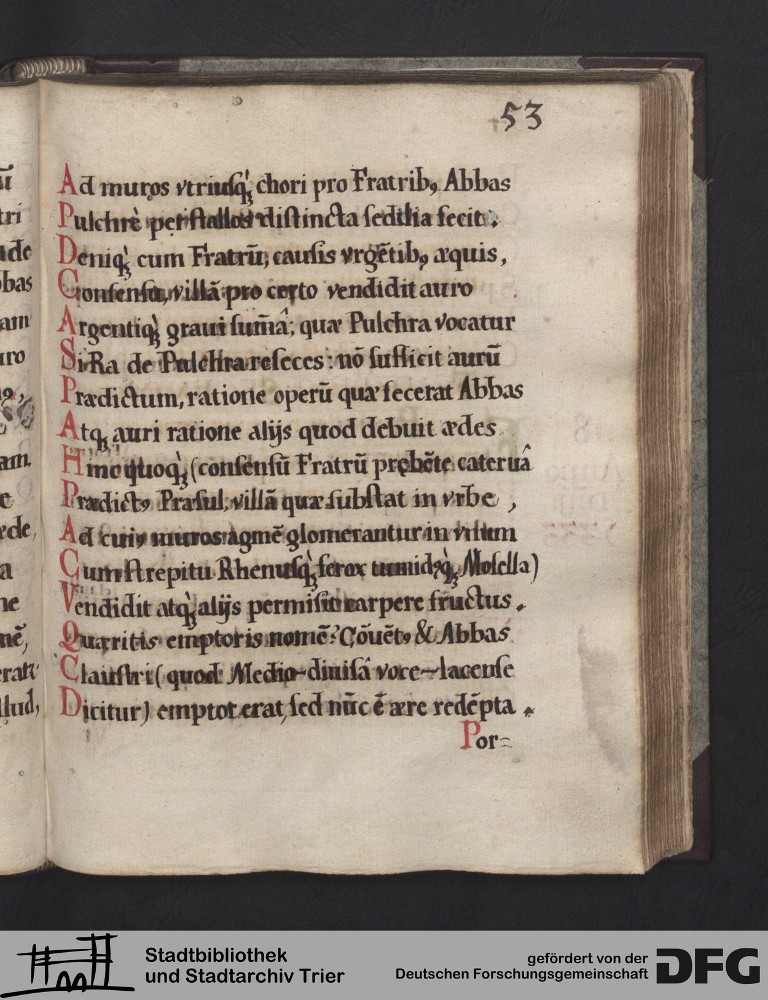 53
Ad muros vtriusq́; chori pro Fratribꝰ Abbas
Pulchrè per stallos distincta sedilia fecit.
Deniq́; cum Fratrũ, causis vrgẽtibꝰ æquis,
Consensu, villã pro certo vendidit auro
Argentiq́; graui sum̃â; quæ Pulchra vocatur
Si Ra de Pulchra reseces: nõ sufficit aurũ
Prædictum, ratione operũ quæ fecerat Abbas
Atq; auri ratione alijs quod debuit ædes
Hinc quoq́; (consensũ Fratrũ præbẽte cateruâ
Prædictꝰ Præsul, villã quæ substat in vrbe,
Ad cuiꝰ muros agmẽ glomerantur in vnum
Cum strepitu Rhenusq́; ferox tumidꝰq́; Mosella)
Vendidit atq́; alijs permisit carpere fructus.
Quæritis emptoris nomẽ? Cõuẽtꝰ & Abbas
Claustri (quod Medio-diuisâ voce-lacense
Dicitur) emptor erat, sed nũc ẽ ære redẽpta.
Por=
ũ
tri
bbas
am
uro
am
e
a
ne
nẽ,
llud,
Stadtbibliothek
und Stadtarchiv Trier
gefördert von der
Deutschen Forschungsgemeinschaft
DFG